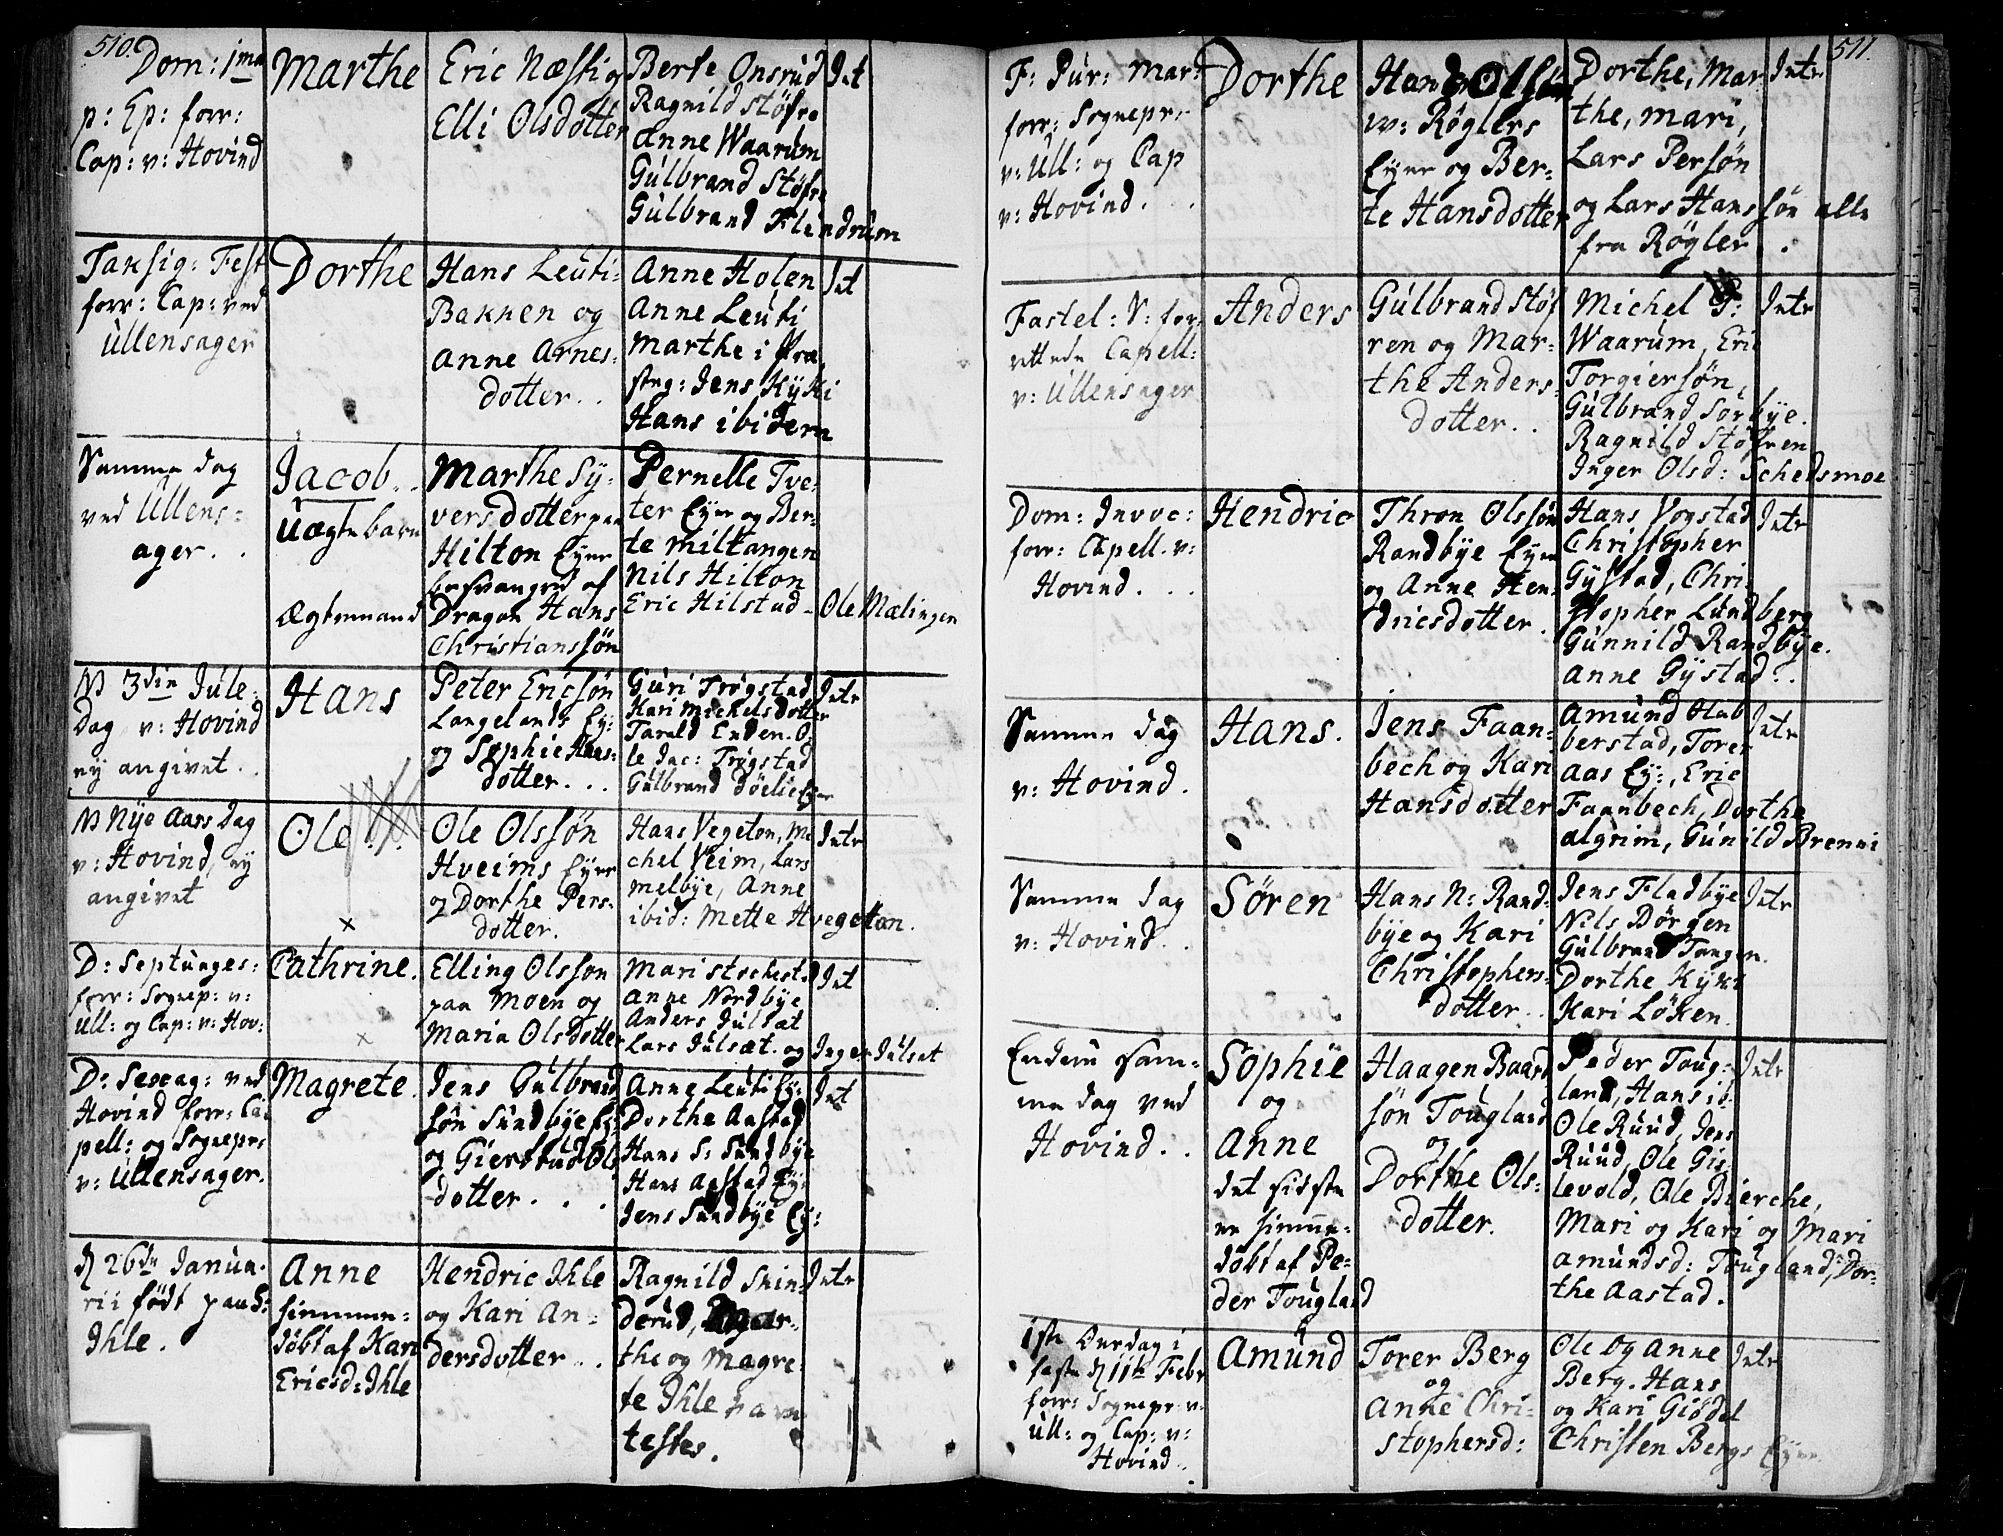 510.
Dom: 1ma
p: Ep: forr:
Cap: v: Hovind
Marthe
Eric Næssig
Elli Olsdotter
Berte Onsrud
Ragnild Støfre
Anne Waarum
Gulbrand Støfre
Gulbrand Flindrum
Int
Taksig: Fest
forr: Cap: ved
Ullensager
Dorthe
Hans Leuti-
Bakken og
Anne Arnes-
dotter..
Anne Holen
Anne Leuti
Marthe i Præ-
steg: Jens Kyki
Hans ibidem
Int
Samme dag
ved Ullens-
ager..
Jacob..
Uægte barn
Ægtemand
Marthe Sy-
versdotter paa
Hilton Eyer
besvangred af
Dragon Hans
Christianssøn
Pernelle Tve-
ter Eyer og Ber-
te Miltangen
Nils Hilton
Eric Hilstad- Ole Mælingen
N 3die Jule-
Dag v: Hovind
ey angivet..
Hans
Peter Ericsøn
Langelands Ey:
og Sophie Hans-
dotter...
Guri Trøgstad
Kari Michelsdotter
Tarald Enden. O-
le Jac: Trøgstad
Gulbrand Døelie Eyer
Intr
N Nye Aars Dag
v: Hovind, ey
angivet
Ole
Ole Olssøn
Hveims Eyer
og Dorthe Pers-
dotter.
Hans Vegeton, Mi-
chel Veim, Lars
Melbye, Anne
ibid: Mette Hvegetan.
Intr
D: Septuages:
forr: Sognep: v:
Ull: og Cap: v: Hov:
Cathrine.
Elling Olsson
paa Moen og
Maria Olsdotter
Mari Stochest.
Anne Nordbye
Anders Julsæt
Lars Julsæt. og Inger Julsæt
Int
D: Sexag: ved
Hovind forr: Ca-
pell: og Sognepr:
v: Ullensager.
Magrete.
Jens Gulbrand
søn Sundbye Ey:
og Giertrud Ols
dotter...
Anne Leuti Ey:
Dorthe Aastad
Hans S: Sundbye
Hans Aastad Ey:
Jens Sundbye Ey:
Int
d 26de Janua-
rii født paa S:
Ihle.
Anne
hiemme-
døbt af Kari
Ericsd: Ihle
Hendric Ihle
og Kari An-
dersdotter..
Ragnild Skin-
derud, Mar-
the og Magre-
te Ihle vare
testes.
Intr
511.
F: Pur: Mar:
forr: Sognepr-
v: Ull: og Cap
v: Hovind...
Dorthe
Hans Olsøn
Røglers
Eyer og Ber-
te Hansdotter
Dorthe, Mar
the, Mari,
Lars Persøn
og Lars Hanssøn alle
fra Røgler.
Intr
Fastel: S: for-
rettede Capell:
v: Ullensager
Anders
Gulbrand Støf
ren og Mar-
the Anders-
dotter..
Michel P:
Waarum, Eric
Torgiersøn,
Gulbrand Sørbye.
Ragnild Støfren
Inger Olsd: Schedsmoe
Intr
Dom: Invoc:
forr: Capell. v:
Hovind...
Hendric
Thron Olssøn
Randbye Eyer
og Anne Hen-
dricsdotter.
Hans Vogstad
Christopher
Gystad, Chri-
stopher Lundberg
Gunnild Randbye.
Anne Gystad..
Intr
Samme dag
v: Hovind.
Hans.
Jens Faan-
bech og Kari
Hansdotter
Amund Hab
berstad, Torer
Aas Ey:, Eric
Faanbech, Dorthe
Algrim, Gunild Brenni
Intr
Samme dag
v: Hovind..
Søren
Hans N: Rand-
bye og Kari
Christophers-
dotter..
Jens Fladbye
Nils Børgen
Gulbrand Tangen.
Dorthe Kyki
Kari Løken.
Intr
Endnu sam-
me dag ved
Hovind..
Sophie
og
Anne
det sidste
er hiemme-
døbt af Pe-
der Tougland
Haagen Baard
søn Tougland
og
Dorthe Ols-
dotter.
Peder Toug-
land, Hans ib.
Ole Ruud, Jens
Ruud, Ole Gis-
levold, Ole Bierche,
Mari og Kari og Mari
Amundsd: Tougland, Dor-
the Aastad.
Intr
1ste Onsdag i
faste d 11te Febr
forr: Sognepr: v:
Ull: og Cap: v:
Hovind.
Amund
Torer Berg
og
Anne Chri-
stophersd:
Ole og Anne
Berg. Hans
og Kari Giødel
Christen Bergs Eyer
Intr